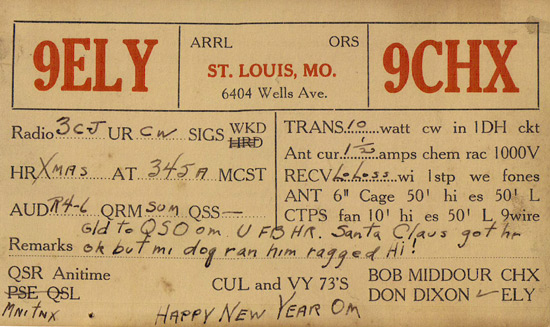 9ELY
ARRL ORS
ST. LOUIS, MO.
6404 Wells Ave.
9CHX
Radio 3CJ UR CW SIGS WKD HRD
HR Xmas AT 345A MCST
AUD R4-6 QRM som QSS —
Gld to QSO om. UFB HR. Santa Claus got hr
Remarks ok but mi dog ran him ragged Hi!
TRANS. 10 watt cw in 1DH ckt
Ant cur. 1 1/2 amps chem rac 1000V
RECV LoLoss wi 1stp we fones
ANT 6" Cage 50' hi es 50' L
CTPS fan 10' hi es 50' L 9wire
QSR Anitime
PSE QSL
Mni tnx.
CUL and VY 73'S
Happy New Year Om
BOB MIDDOUR CHX
DON DIXON ✓ ELY